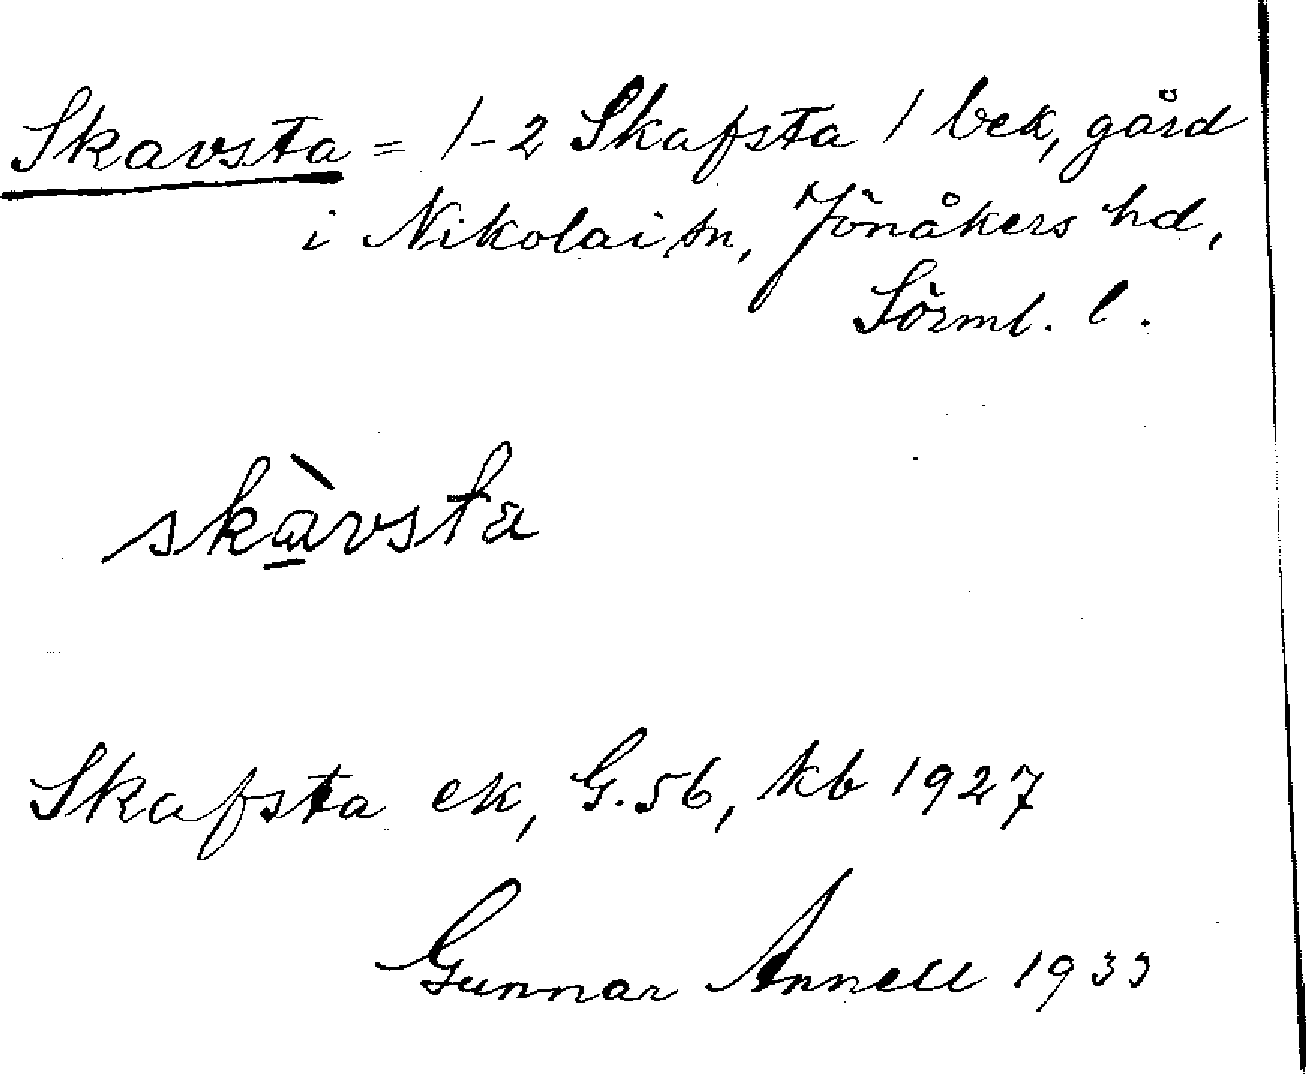 Skavsta = 1-2 Skafsta 1 bek, gård
i Nikolai sn, Jönåkers hd,
Sörml. l.
skàvsta
Skafsta ek, G.56, kb 1927
Gunnar Annell 1933